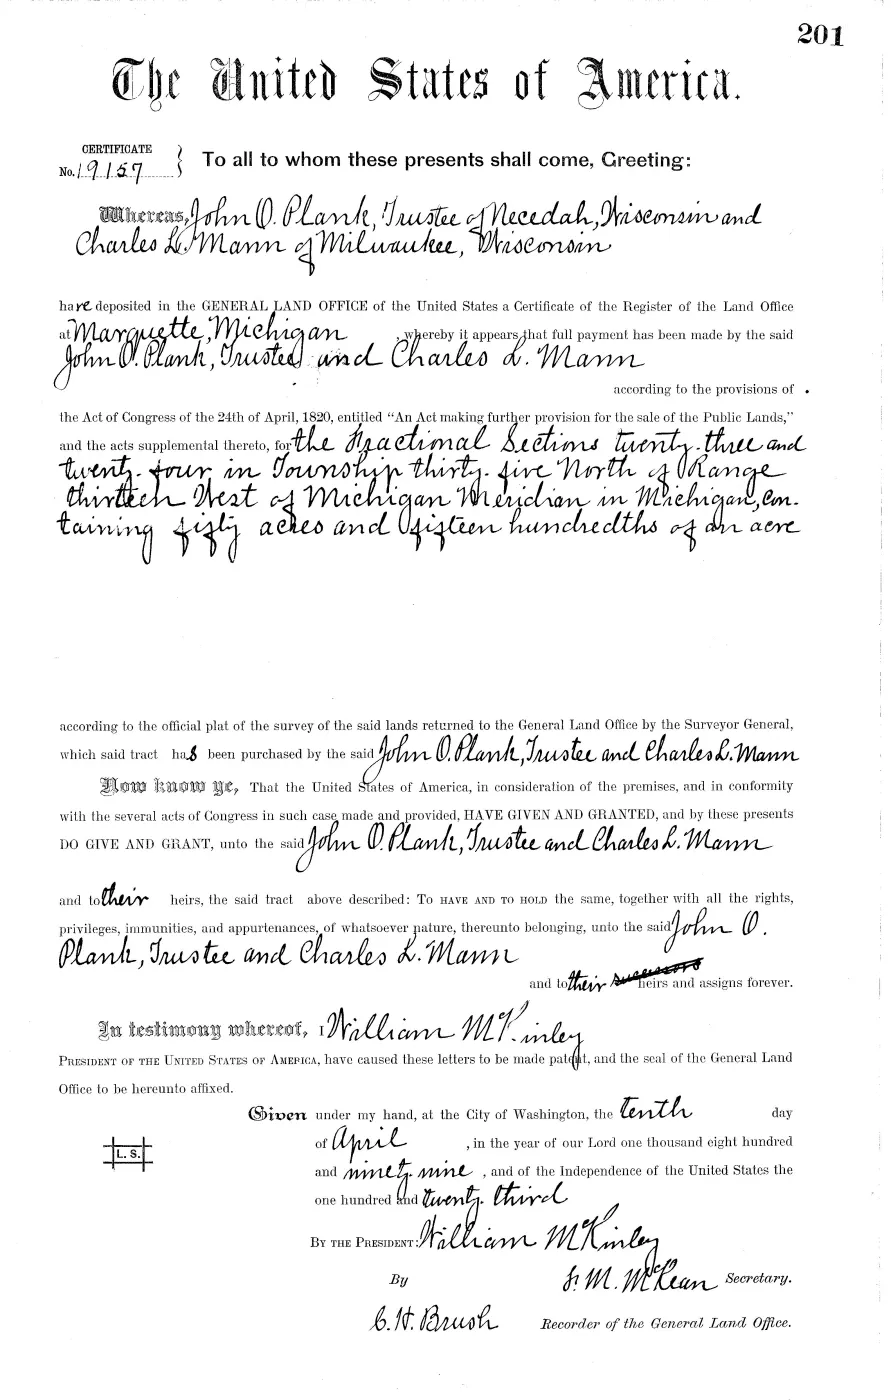 201
The United States of America.
CERTIFICATE
No. 19157
To all to whom these presents shall come, Greeting:
Whereas, John O. Plank, Trustee of Necedah, Wisconsin and
Charles L. Mann of Milwaukee, Wisconsin
have deposited in the GENERAL LAND OFFICE of the United States a Certificate of the Register of the Land Office
at Marquette, Michigan , whereby it appears that full payment has been made by the said
John O. Plank, Trustee and Charles L. Mann
according to the provisions of
the Act of Congress of the 24th of April, 1820, entitled “An Act making further provision for the sale of the Public Lands,”
and the acts supplemental thereto, for the Fractional Sections twenty-three and
twenty-four in Township thirty-five North of Range
thirteen West of Michigan Meridian in Michigan, con-
taining fifty acres and fifteen hundredths of an acre
according to the official plat of the survey of the said lands returned to the General Land Office by the Surveyor General,
which said tract has been purchased by the said John O. Plank, Trustee and Charles L. Mann
Now know ye, That the United States of America, in consideration of the premises, and in conformity
with the several acts of Congress in such case made and provided, HAVE GIVEN AND GRANTED, and by these presents
DO GIVE AND GRANT, unto the said John O. Plank, Trustee and Charles L. Mann
and to their heirs, the said tract above described: TO HAVE AND TO HOLD the same, together with all the rights,
privileges, immunities, and appurtenances, of whatsoever nature, thereunto belonging, unto the said John O.
Plank, Trustee and Charles L. Mann
and to their successors heirs and assigns forever.
In testimony whereof, I William McKinley
PRESIDENT OF THE UNITED STATES OF AMERICA, have caused these letters to be made patent, and the seal of the General Land
Office to be hereunto affixed.
Given under my hand, at the City of Washington, the tenth day
of April , in the year of our Lord one thousand eight hundred
L. S.
and ninety-nine , and of the Independence of the United States the
one hundred and twenty-third
BY THE PRESIDENT: William McKinley
By F. M. McKean Secretary.
C. H. Brush Recorder of the General Land Office.